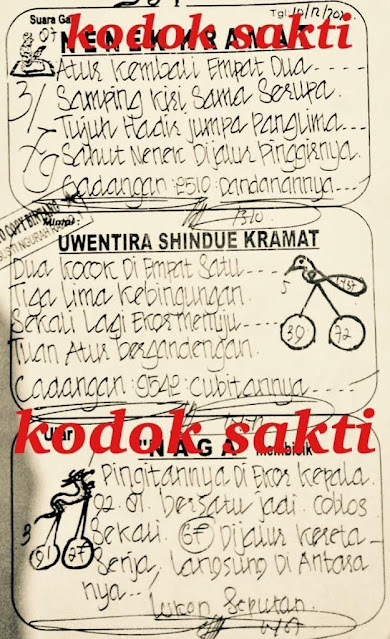 Suara Ga
Tgl.
07
NENEK KRAMAT
kodok sakti
Atur Kembali Empat Dua
3/
Samping Kiri Sama Serupa.
Tujuh Hadir Jumpa Panglima
79
Sahut Nenek Dijalur Pinggirnya.
Cadangan : 9510 : Dandanannya
1370
UWENTIRA SHINDUE KRAMAT
Dua Kocok Di Empat Satu
Tiga Lima Kebingungan.
5
Sekali Lagi Ekor Menuju
Tuan Atur bergandengan.
39 72
Cadangan : 9540 : Cubitannya
kodok sakti
"NAGA membisik
Pingitannya Di Ekor Kepala.
92. 01. bersatu jadi. Coblos
Sekali. 67 Dijalur Kereta
3
91 27
Senja. Langsung Di Antara
nya